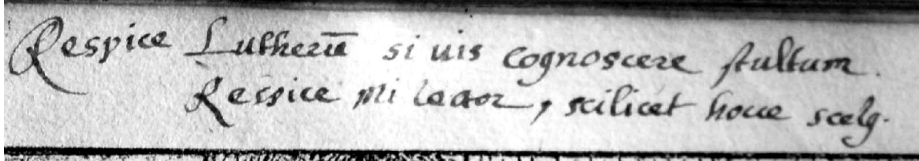 Respice Lutherū si uis cognoscere stultum.
Respice mi lector, scilicet houe scelꝫ.